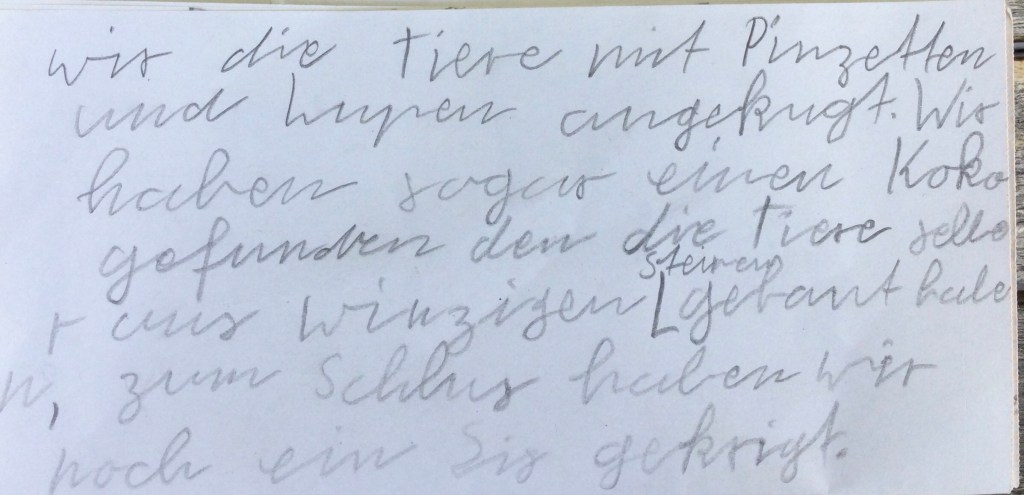 wir die Tiere mit Pinzetten
und Lupen angekugt. Wir
haben sogar einen Koko
gefunden den die Tiere selbe
steinen
r aus winzigen gebaut habe
n, zum Schlus haben wir
noch ein Eis gekrigt.